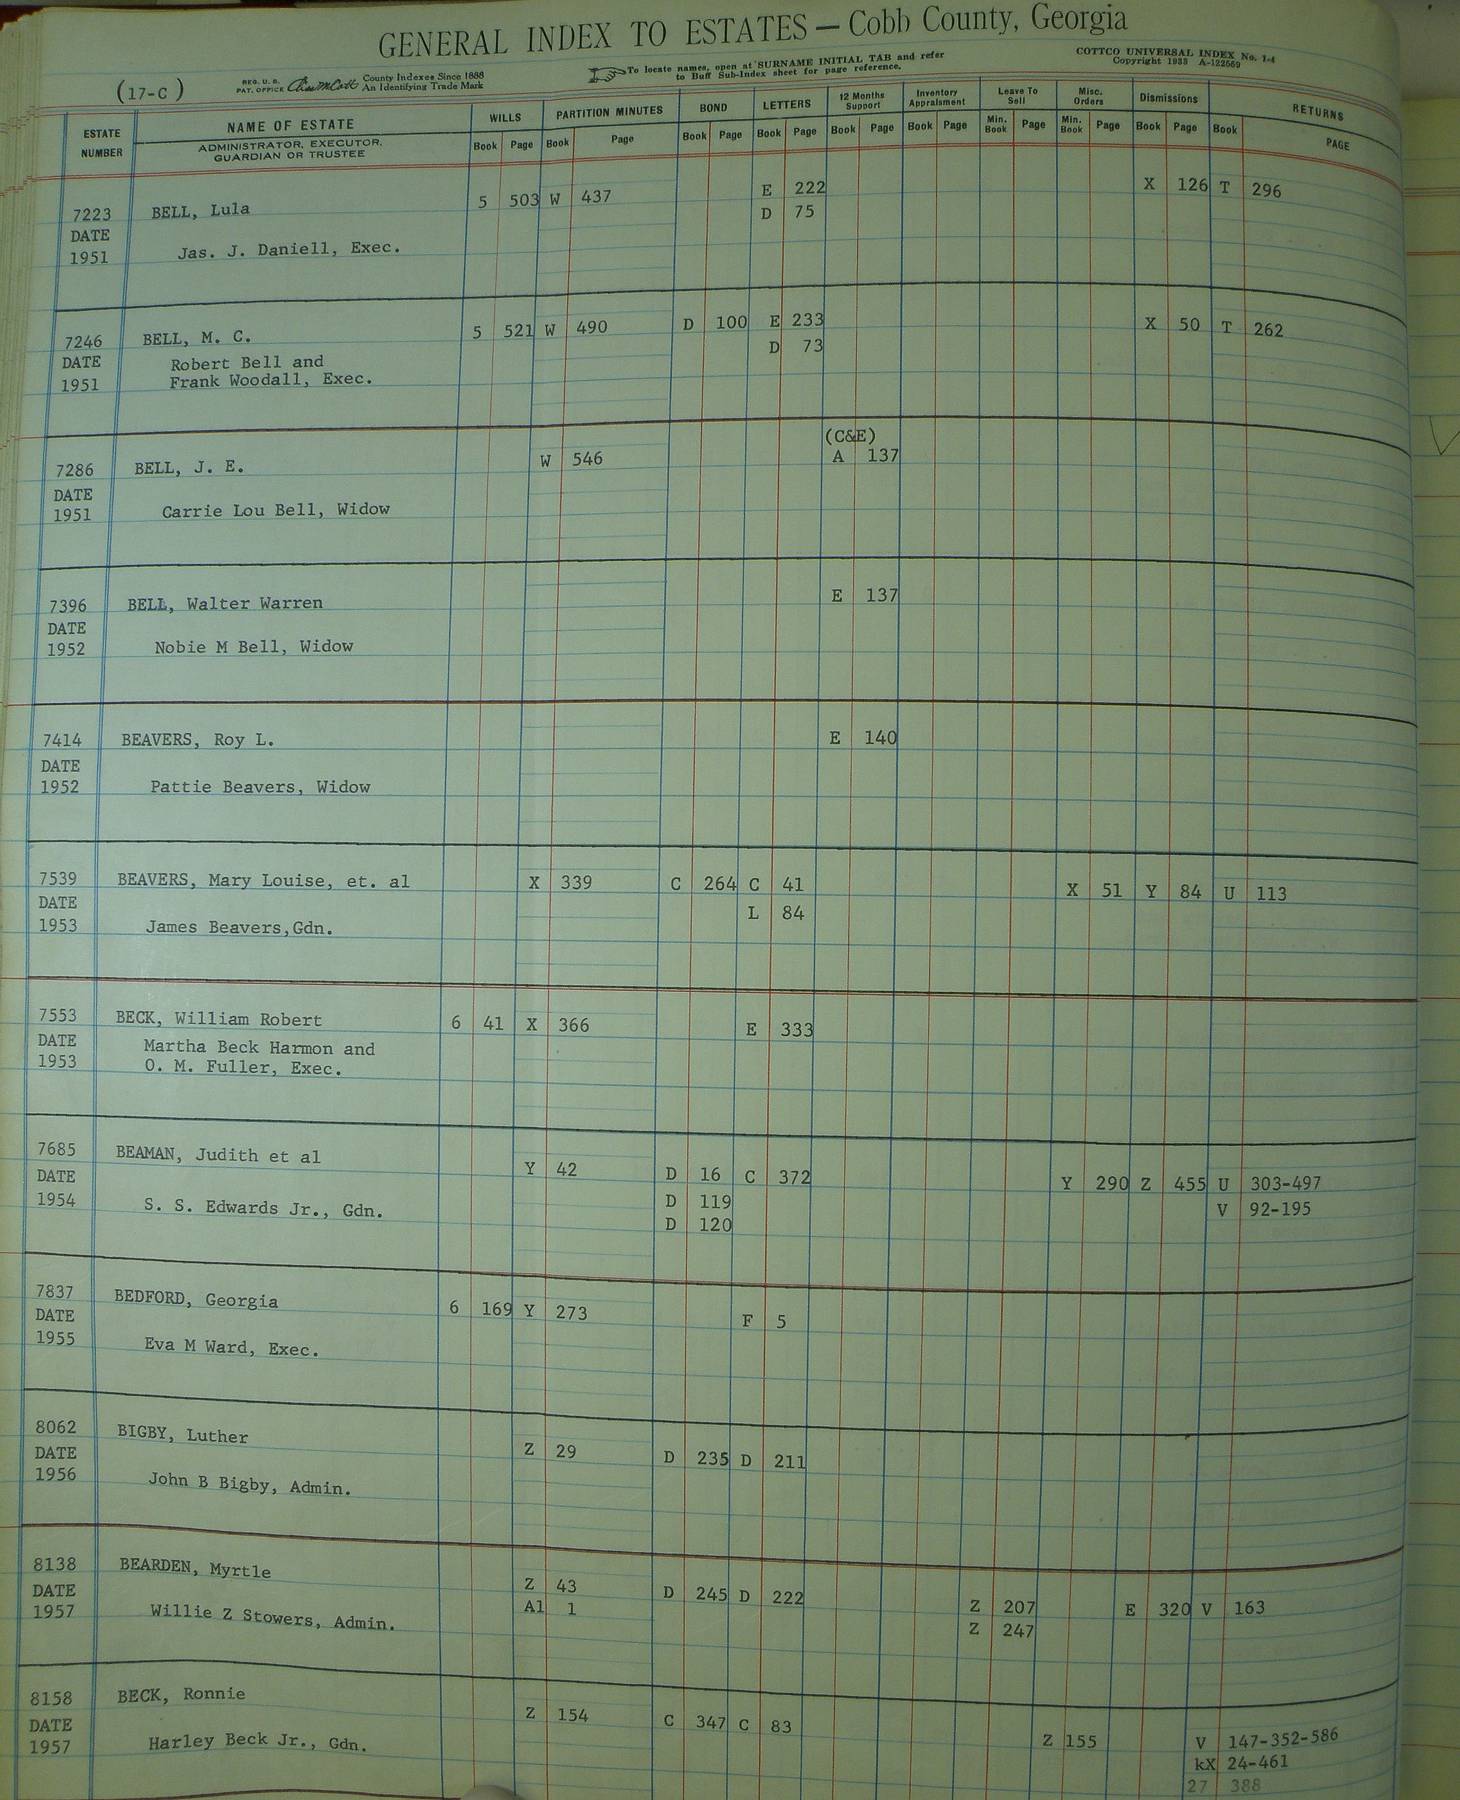 GENERAL INDEX TO ESTATES — Cobb County, Georgia
(17-C)
REG. U. S. PAT. OFFICE County Indexes Since 1888 An Identifying Trade Mark
To locate names, open at SURNAME INITIAL TAB and refer
to Buff Sub-Index sheet for page reference.
COTTCO UNIVERSAL INDEX No. 1-4
Copyright 1933 A-122569
ESTATE NUMBER NAME OF ESTATE WILLS PARTITION MINUTES BOND LETTERS 12 Months Support Inventory Appraisment Leave To Sell Misc. Orders Dismissions RETURNS
ADMINISTRATOR, EXECUTOR, GUARDIAN OR TRUSTEE Book Page Book Page Book Page Book Page Book Page Book Page Min. Book Page Min. Book Page Book Page Book PAGE
7223 BELL, Lula 5 503 W 437 E 222 X 126 T 296
DATE D 75
1951 Jas. J. Daniell, Exec.
7246 BELL, M. C. 5 521 W 490 D 100 E 233 X 50 T 262
DATE Robert Bell and D 73
1951 Frank Woodall, Exec.
(C&E)
7286 BELL, J. E. W 546 A 137
DATE
1951 Carrie Lou Bell, Widow
7396 BELL, Walter Warren E 137
DATE
1952 Nobie M Bell, Widow
7414 BEAVERS, Roy L. E 140
DATE
1952 Pattie Beavers, Widow
7539 BEAVERS, Mary Louise, et. al X 339 C 264 C 41 X 51 Y 84 U 113
DATE L 84
1953 James Beavers,Gdn.
7553 BECK, William Robert 6 41 X 366 E 333
DATE Martha Beck Harmon and
1953 O. M. Fuller, Exec.
7685 BEAMAN, Judith et al Y 42 D 16 C 372 Y 290 Z 455 U 303-497
DATE D 119 V 92-195
1954 S. S. Edwards Jr., Gdn. D 120
7837 BEDFORD, Georgia 6 169 Y 273 F 5
DATE
1955 Eva M Ward, Exec.
8062 BIGBY, Luther Z 29 D 235 D 211
DATE
1956 John B Bigby, Admin.
8138 BEARDEN, Myrtle Z 43 D 245 D 222 Z 207 E 320 V 163
DATE A1 1 Z 247
1957 Willie Z Stowers, Admin.
8158 BECK, Ronnie Z 154 C 347 C 83 Z 155 V 147-352-586
DATE kX 24-461
1957 Harley Beck Jr., Gdn. 27 388